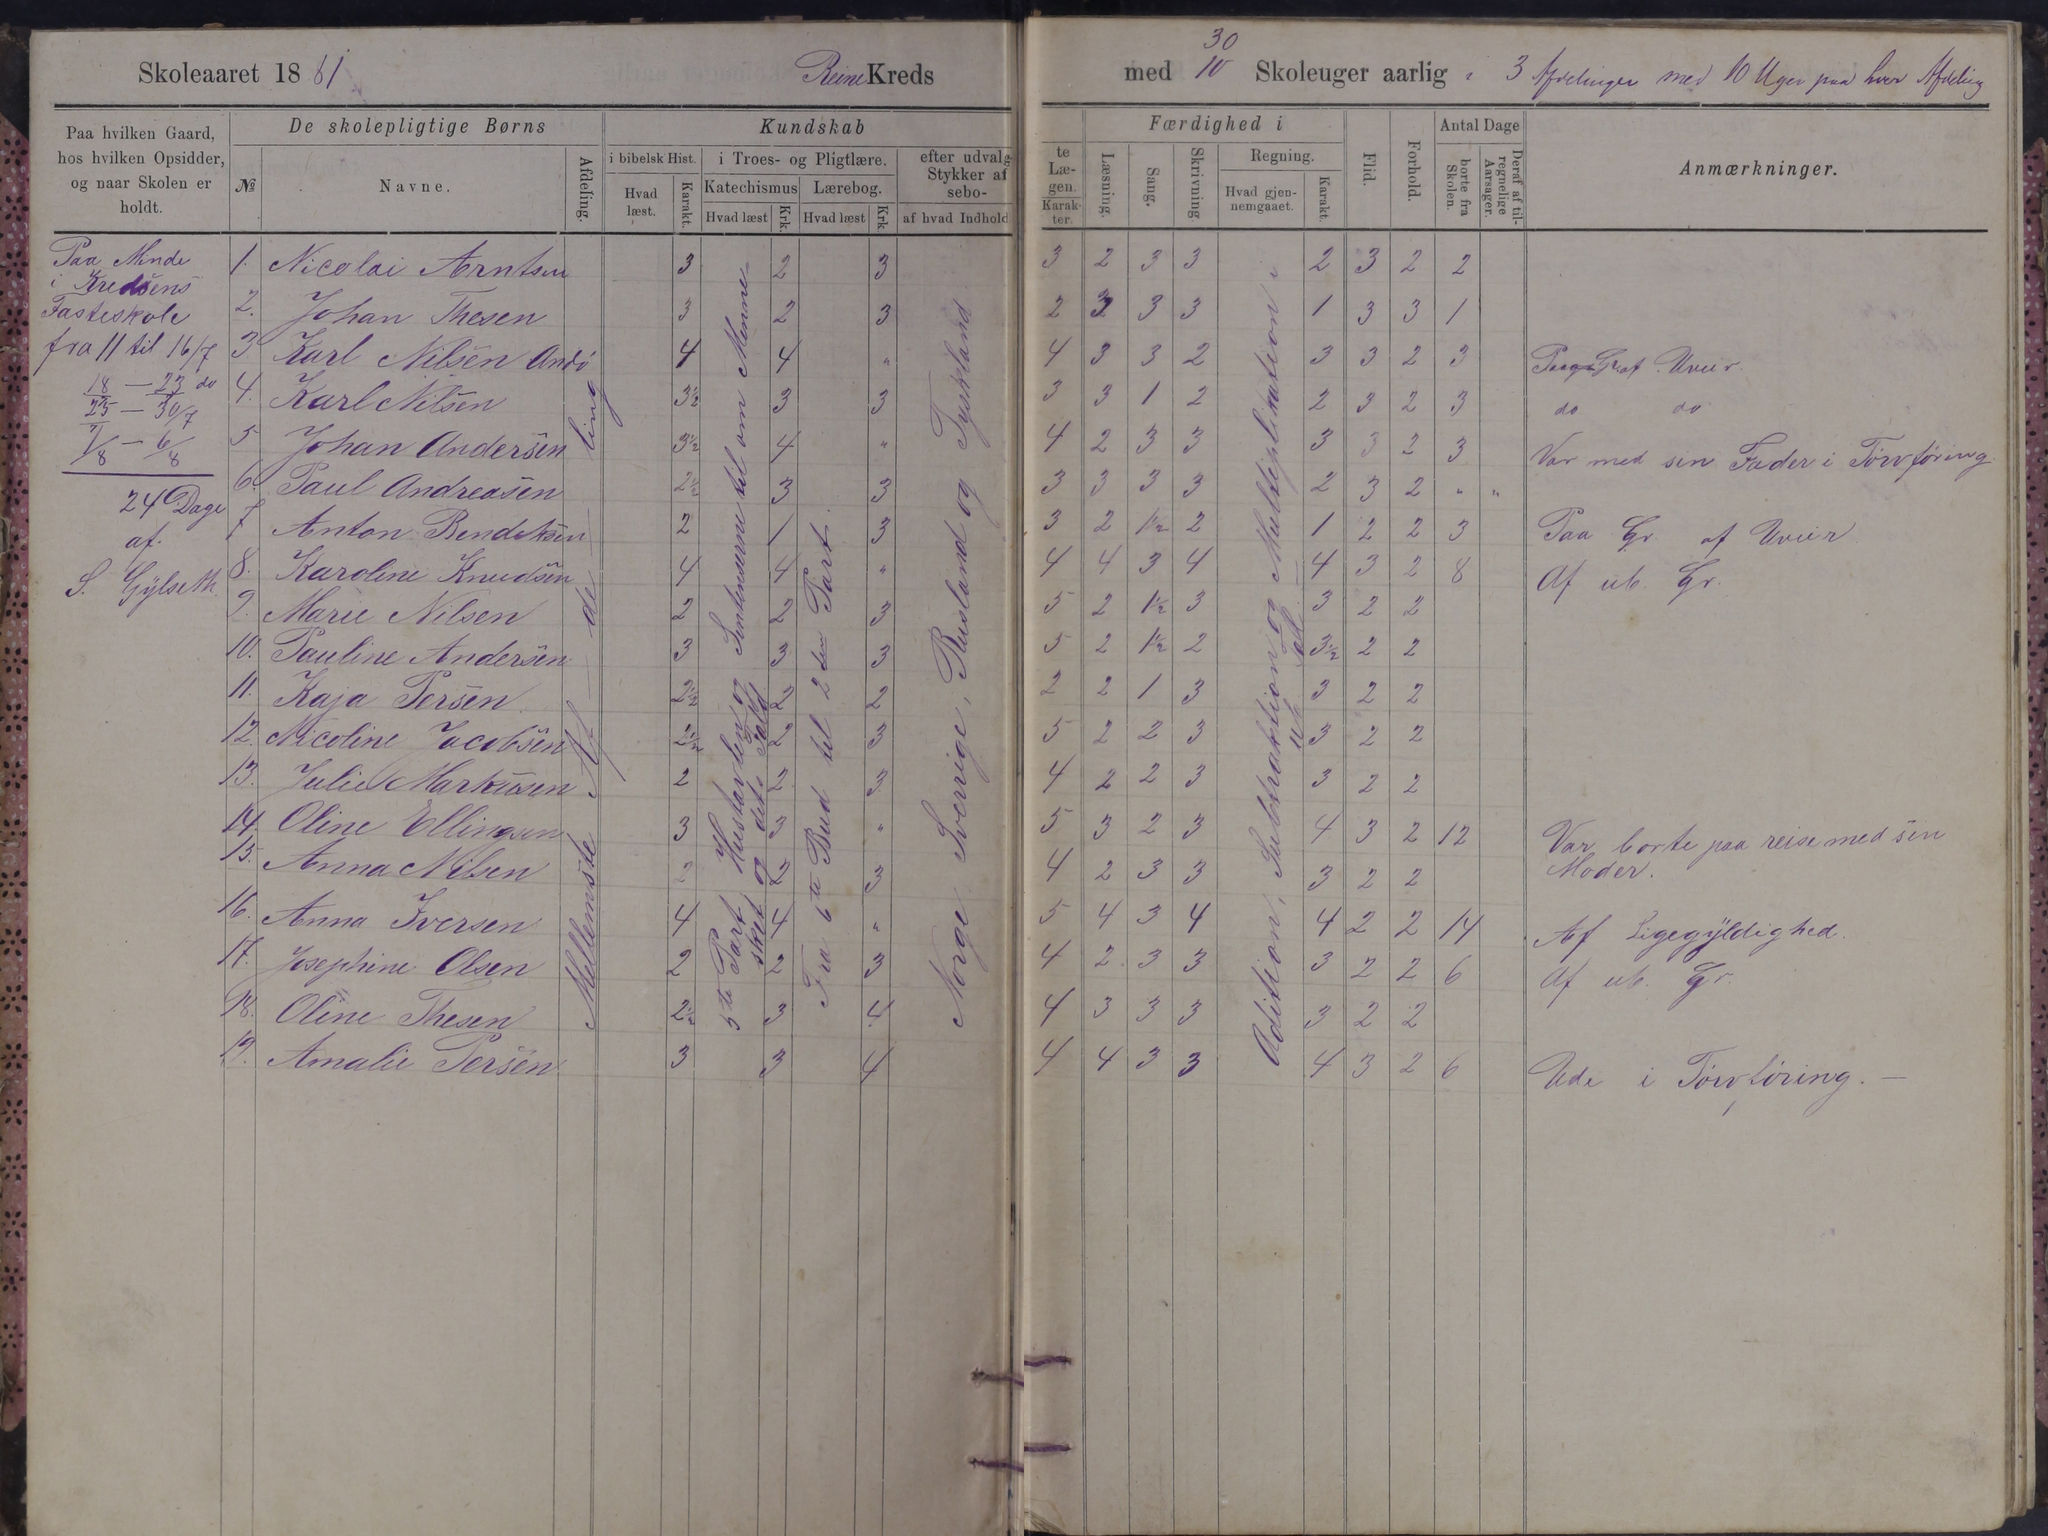 Skoleaaret 1881
Reine Kreds
Paa hvilken Gaard, hos hvilken Opsidder, og naar Skolen er holdt.
De skolepligtige Børns
№
Navne.
Afdeling.
Kundskab
i bibelsk Hist.
Hvad læst.
Karakt.
i Troes- og Pligtlære.
Katechismus
Hvad læst
Krk.
Lærebog.
Hvad læst
Krk.
efter udvalg-
Stykker af
sebo-
af hvad Indhold
Paa Minde
i Kredsens
Fasteskole
fra 11 til 16/7
18 – 23 do
25 – 30/7
1/8 – 6/8
24 Dage
af
S. Gylseth
Mellemste Afdeling
5te Part Hustavlen og Sentenserne til om Menne-
sket og det Fald
Fra 6te Bud til 2den Part.
Norge, Sverrige, Rusland og Tyskland
1. Nicolai Arntsen 3 2 3
2. Johan Thesen 3 2 3
3 Karl Nilsen Andø 4 4 "
4. Karl Nilsen 3½ 3 3
5 Johan Andersen 3½ 4 "
6 Paul Andreasen 2½ 3 3
7 Anton Bendiksen 2 1 3
8. Karoline Knudsen 4 4 "
9. Marie Nilsen 2 2 3
10. Pauline Andersen 3 3 3
11. Kaja Persen. 2½ 2 2
12. Nicoline Jacobsen 2½ 2 3
13. Julie Markusen 2 2 3
14. Oline Ellingsen 3 3 "
15. Anna Nilsen 2 2 3
16. Anna Iversen 4 4 "
17. Josephine Olsen 2 2 3
18. Oline Thesen 2½ 3 4
19. Amalie Persen 3 3 4
30
med 10 Skoleuger aarlig i 3 Afdelinger med 10 Uger paa hver Afdeling
te Læ-
gen.
Karak-
ter.
Færdighed i
Læsning.
Sang.
Skrivning
Regning.
Hvad gjen-
nemgaaet.
Karakt.
Flid.
Forhold.
Antal Dage
borte fra Skolen.
Deraf af til-
regnelige Aarsager.
Anmærkninger.
Adition, Subtraktion og Multeplikation i
ub. Tal
3 2 3 3 2 3 2 2
2 3 3 3 1 3 3 1
4 3 3 2 3 3 2 3 Paa Gr. af Uveir.
3 3 1 2 2 3 2 3 do do
4 2 3 3 3 3 2 3 Var med sin Fader i Törvföring.
3 3 3 3 2 3 2 " "
3 2 1½ 2 1 2 2 3 Paa Gr af Uveir
4 4 3 4 4 3 2 8 Af ub. Gr.
5 2 1½ 3 3 2 2
5 2 1½ 2 3½ 2 2
2 2 1 3 3 2 2
5 2 2 3 3 2 2
4 2 2 3 3 2 2
5 3 2 3 4 3 2 12 Var borte paa reise med sin
Moder.
4 2 3 3 3 2 2
5 4 3 4 4 2 2 14 Af Ligegyldighed.
4 2 3 3 3 2 2 6 Af ub. Gr.
4 3 3 3 3 2 2
4 4 3 3 4 3 2 6 Ude i Törvföring. –